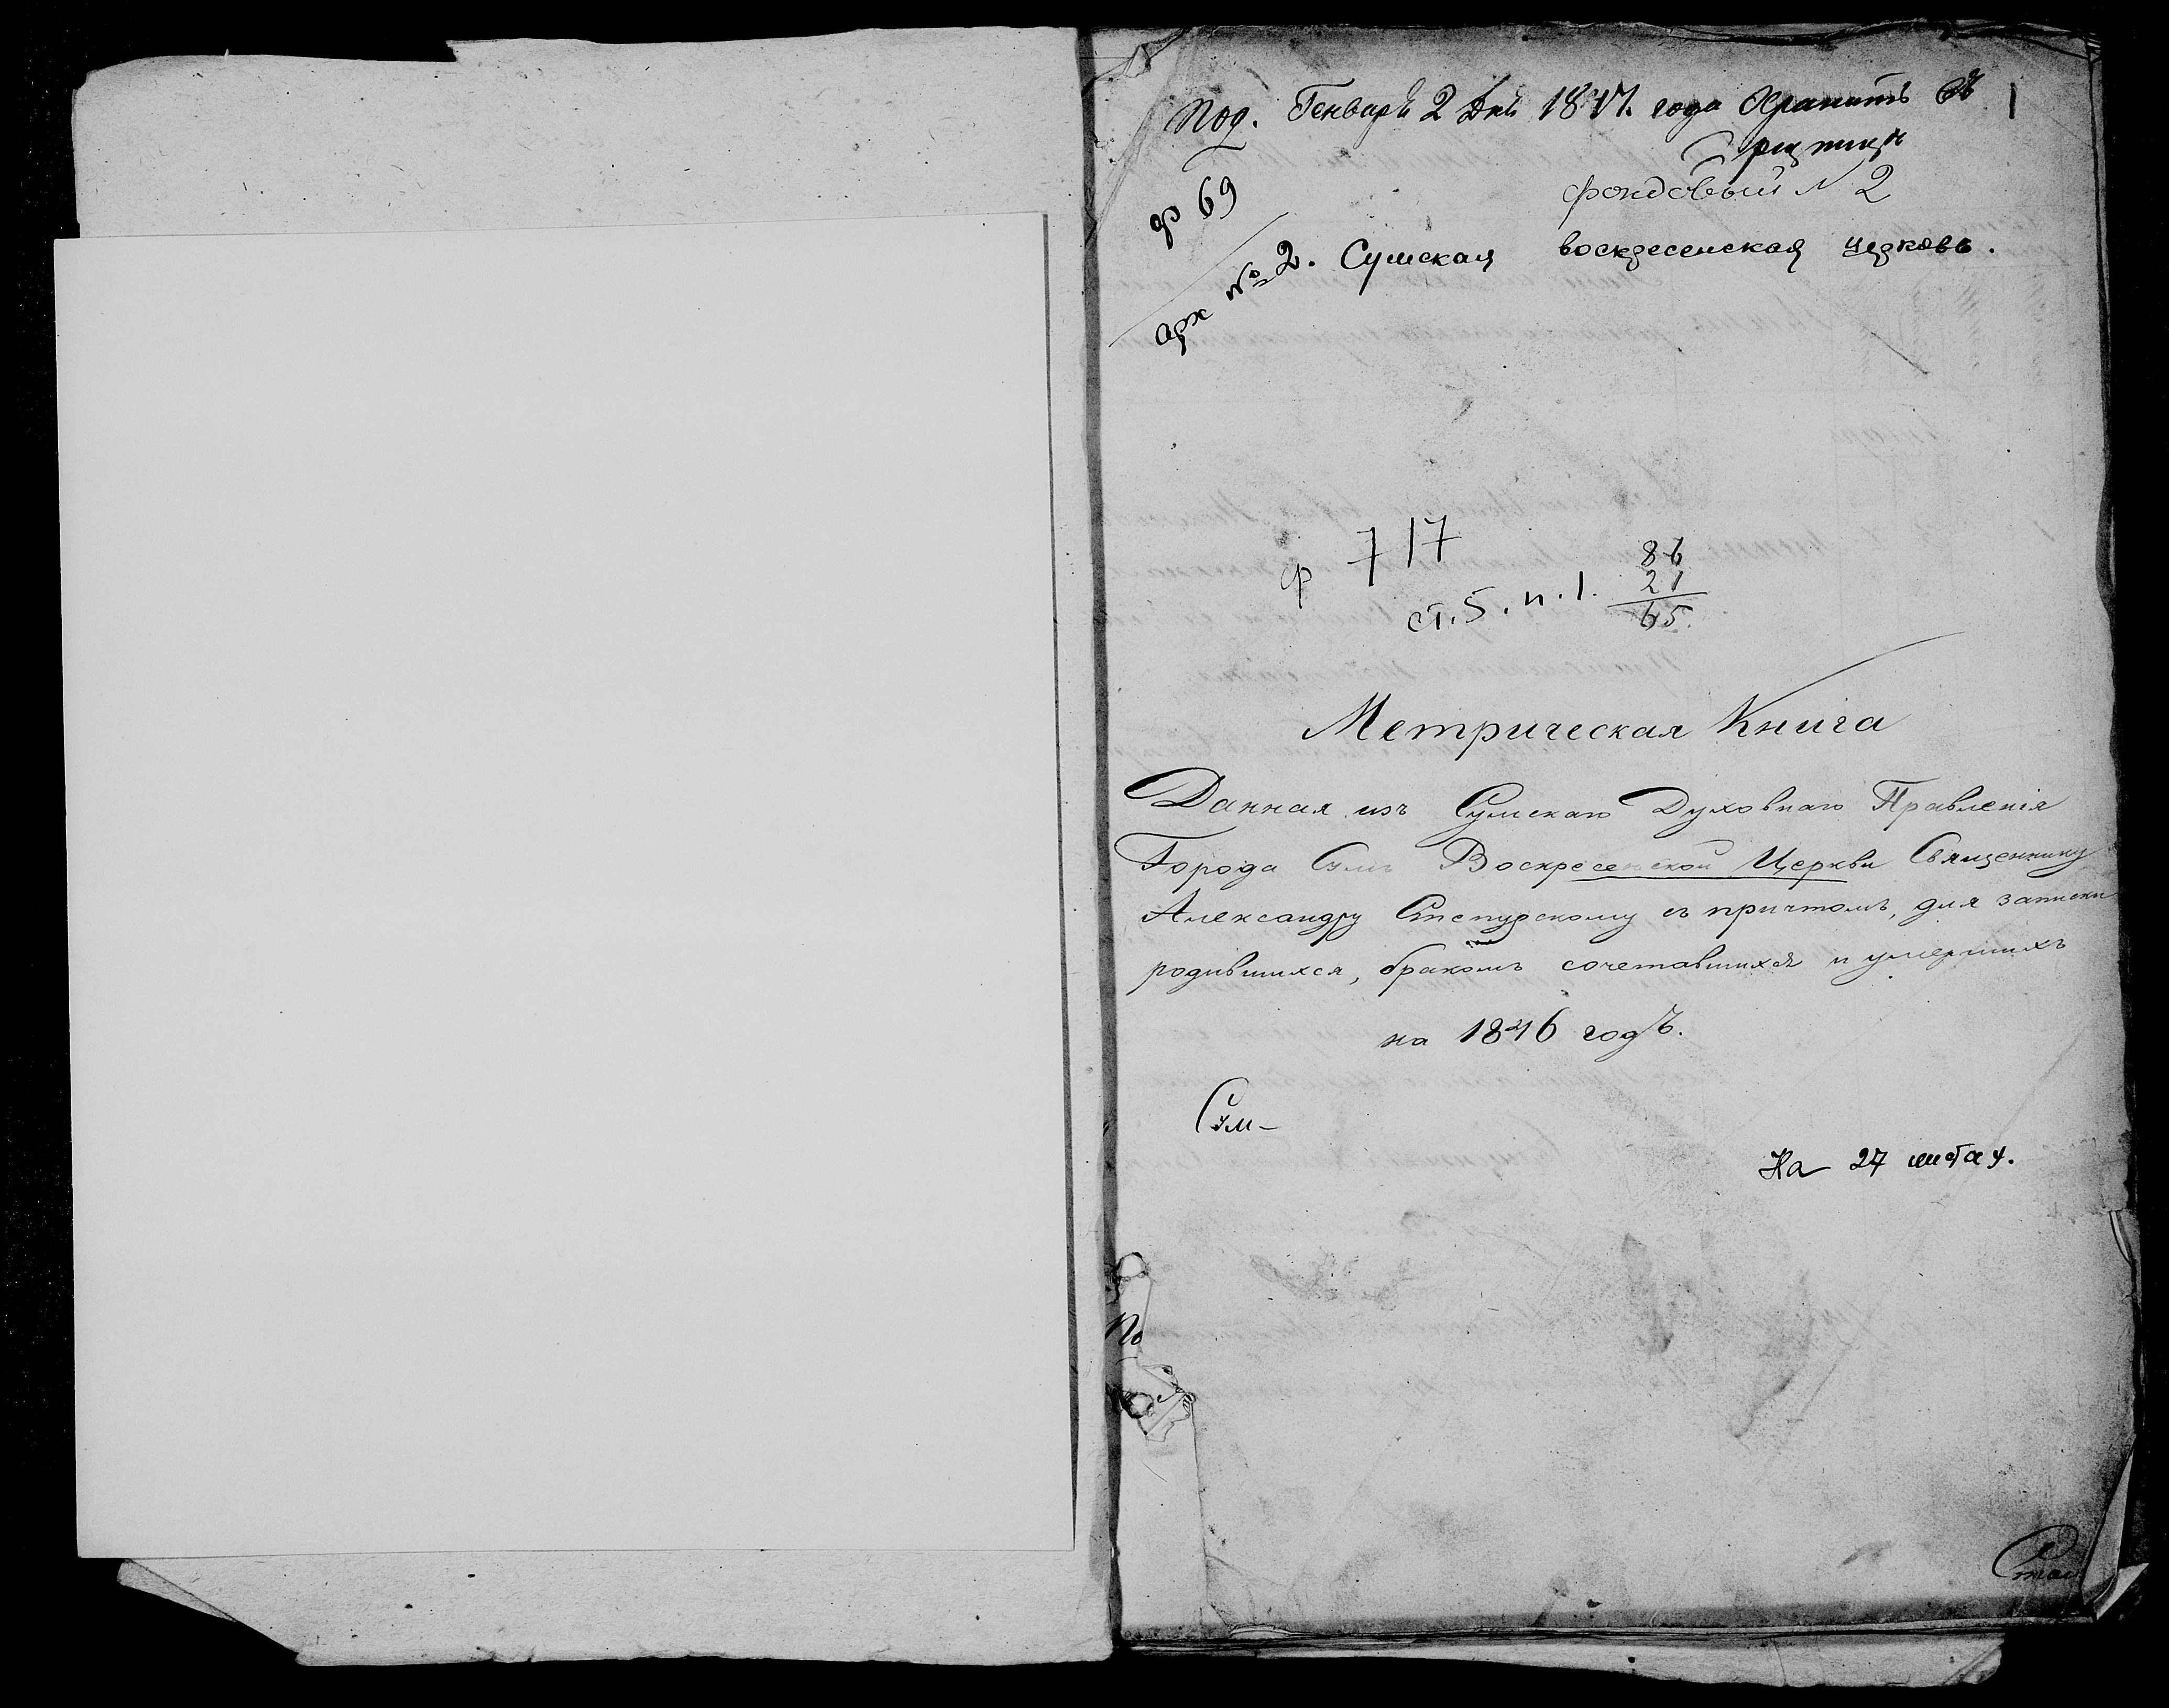 Под. Генваря 2 дня 1847. года Хранить въ
1
ризницѣ
ф 69
фондовый N 2
арх № 2. Сумская воскресенская церковь.
ф 717
ст. 5. п. 1.
86
21
65.
Метрическая Книга
Данная изъ Сумскаго Духовнаго Правленія
Города Сумъ Воскресенской Церкви Священнику
Александру съ причтомъ, для записки
родившихся, бракомъ сочетавшихся и умершихъ
на 1846 годъ.
Сум-
На 27 листах.